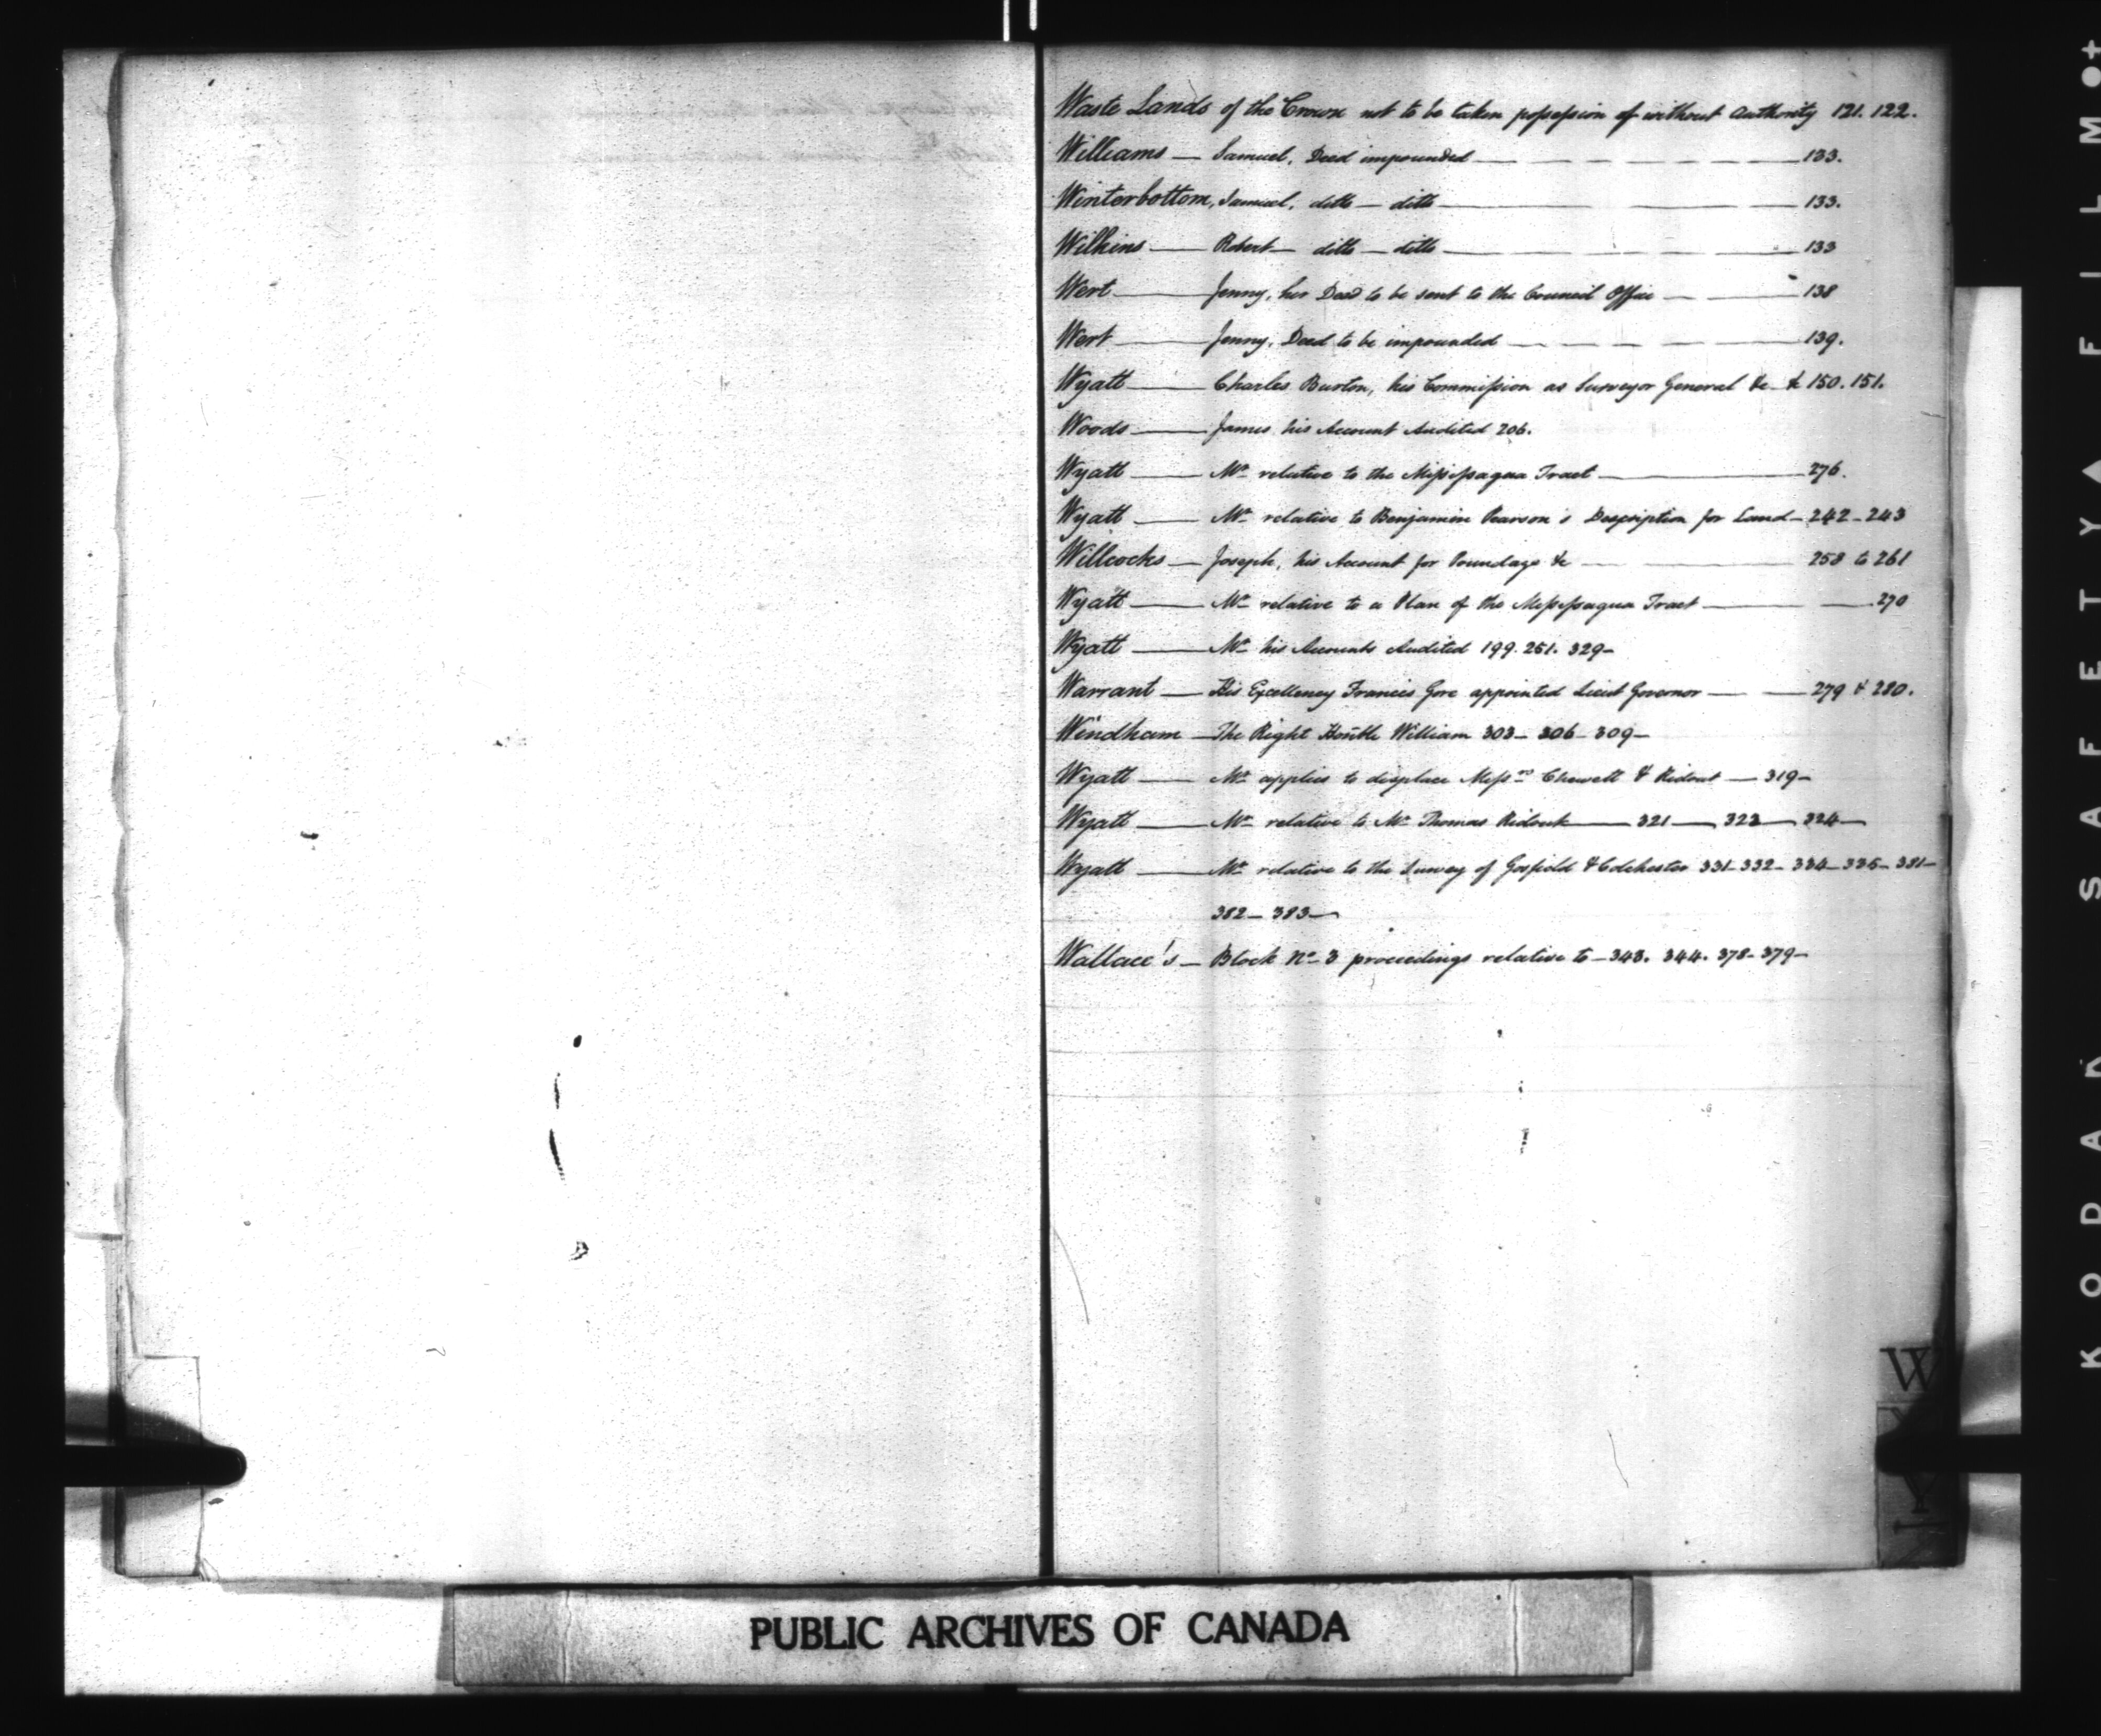 Waste Lands of the Crown not to be taken possession of without Authority 121. 122.
Williams — Samuel, Deed impounded — — — — — — 133.
Winterbottom, Samuel, ditto — ditto — — — — 133.
Wilkins — Robert — ditto — ditto — — — — 133
Wert — Jenny, her Deed to be sent to the Council Office — — 138
Wert — Jenny, Deed to be impounded — — — — — 139.
Wyatt — Charles Burton, his Commission as Surveyor General &c &c 150. 151.
Woods — James his Account Audited 206.
Wyatt — Mr relative to the Missisaqua Tract — 276.
Wyatt — Mr relative to Benjamin Pearson's Description for Land — 242 - 243
Willcocks — Joseph, his Account for Poundage &c — — 258 to 261
Wyatt — Mr relative to a Plan of the Missisaqua Tract — — 270
Wyatt — Mr his Accounts Audited 199. 251. 329 -
Warrant — His Excellency Francis Gore appointed Lieut Governor — — 279 & 280.
Windham — The Right Honble William 303 - 306 - 309 -
Wyatt — Mr applies to displace Messrs Chewett & Ridout — 319 -
Wyatt — Mr relative to Mr Thomas Ridout — 321 — 323 — 324 —
Wyatt — Mr relative to the Survey of Gosfield & Colchester 331 - 332 - 334 - 335 - 381 -
382 - 383 —
Wallace's — Block No 3 proceedings relative to — 343. 344. 378 - 379 -
W
Y
PUBLIC ARCHIVES OF CANADA
KODAK SAFETY FILM